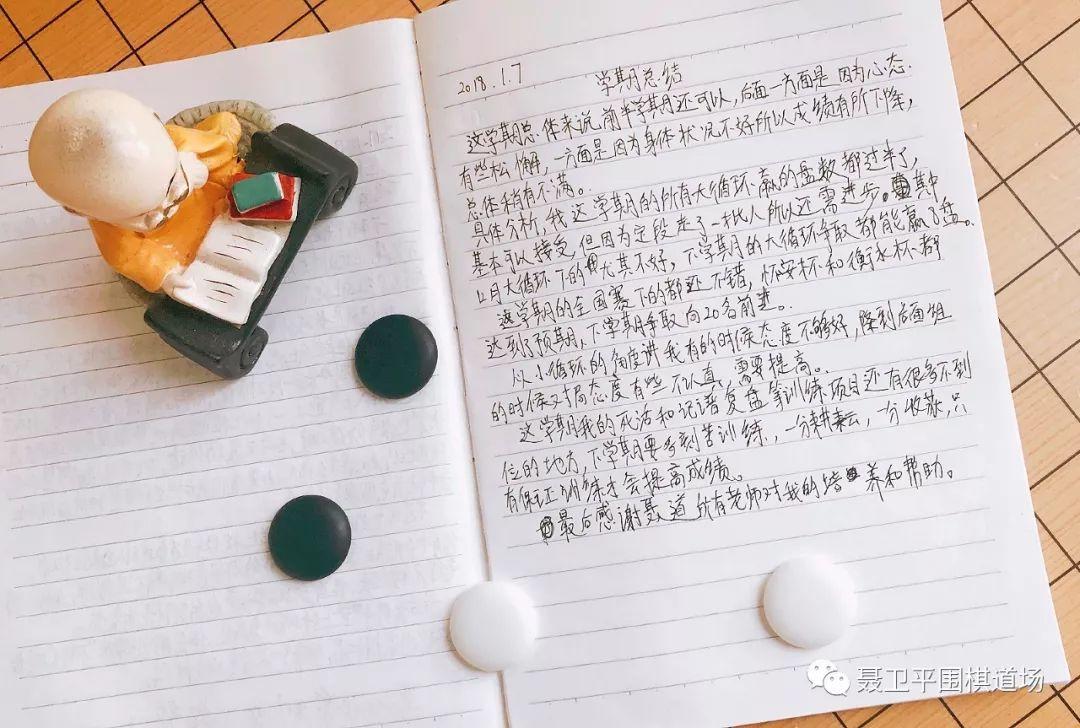 2018.1.7
学期月总结
这学期总体来说前半学期还可以，后面一方面是因为心态
有些松懈，一方面是因为身体状况不好所以成绩有所下降，
总体稍有不满。
具体分析，我这学期的所有大循环赢的盘数都过半了，
基本可以接受，但因为定段走了一批人所以还需进步。其中
12月大循环下的尤其不好，下学期月的大循环争取都能赢了盘。
这学期的全国赛下的都还不错，怀安杯和衡水杯都
达到了预期，下学期争取向20名前进。
从小循环的角度讲我有的时候态度不够好，降到后面组
的时候对局态度有些不认真，需要提高。
这学期我的死活和记谱复盘等训练项目还有很多不到
位的地方，下学期要多刻苦训练，一分耕耘，一分收获，只
有保证训练才会提高成绩。
最后感谢聂道所有老师对我的培养和帮助。
聂卫平围棋道场